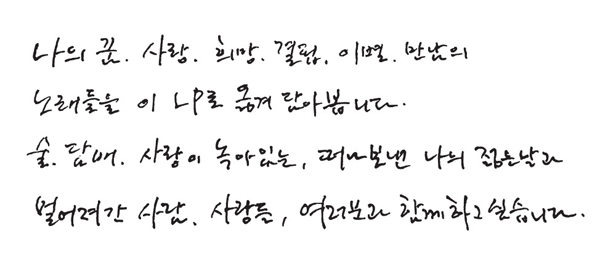 나의 꿈. 사랑. 희망. 결핍. 이별. 만남의
노래들을 이 LP로 옮겨 담아봅니다.
술. 담배. 사랑이 녹아있는, 떠나보낸 나의 젊은날과
멀어져간 사람. 사랑들, 여러분과 함께하고싶습니다.